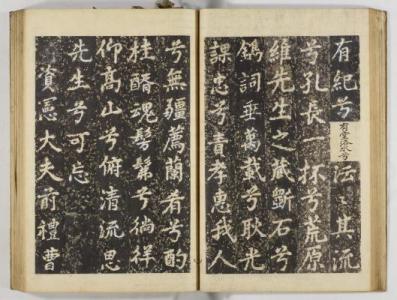 有紀兮
有堂深兮
沄〻其流
兮孔長一抔兮荒原
維先生之藏斲石兮
鐫詞垂萬載兮耿光
課忠兮責孝惠我人
兮無疆薦蘭肴兮酌
桂醑魂髣髴兮徜徉
仰高山兮俯清流思
先生兮可忘
資憲大夫前禮曹